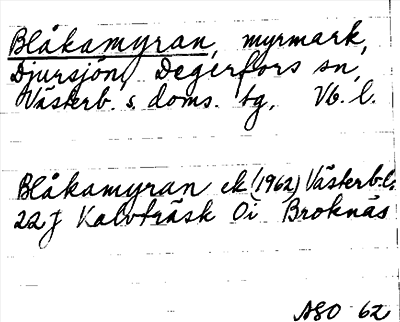 Blåkamyran, myrmark,
Djursjön, Degerfors sn,
Västerb. s. doms. tg, Vb. l.
Blåkamyran ek (1962) Västerb. l.
22 J Kalvträsk Öi Broknäs
ASO 62